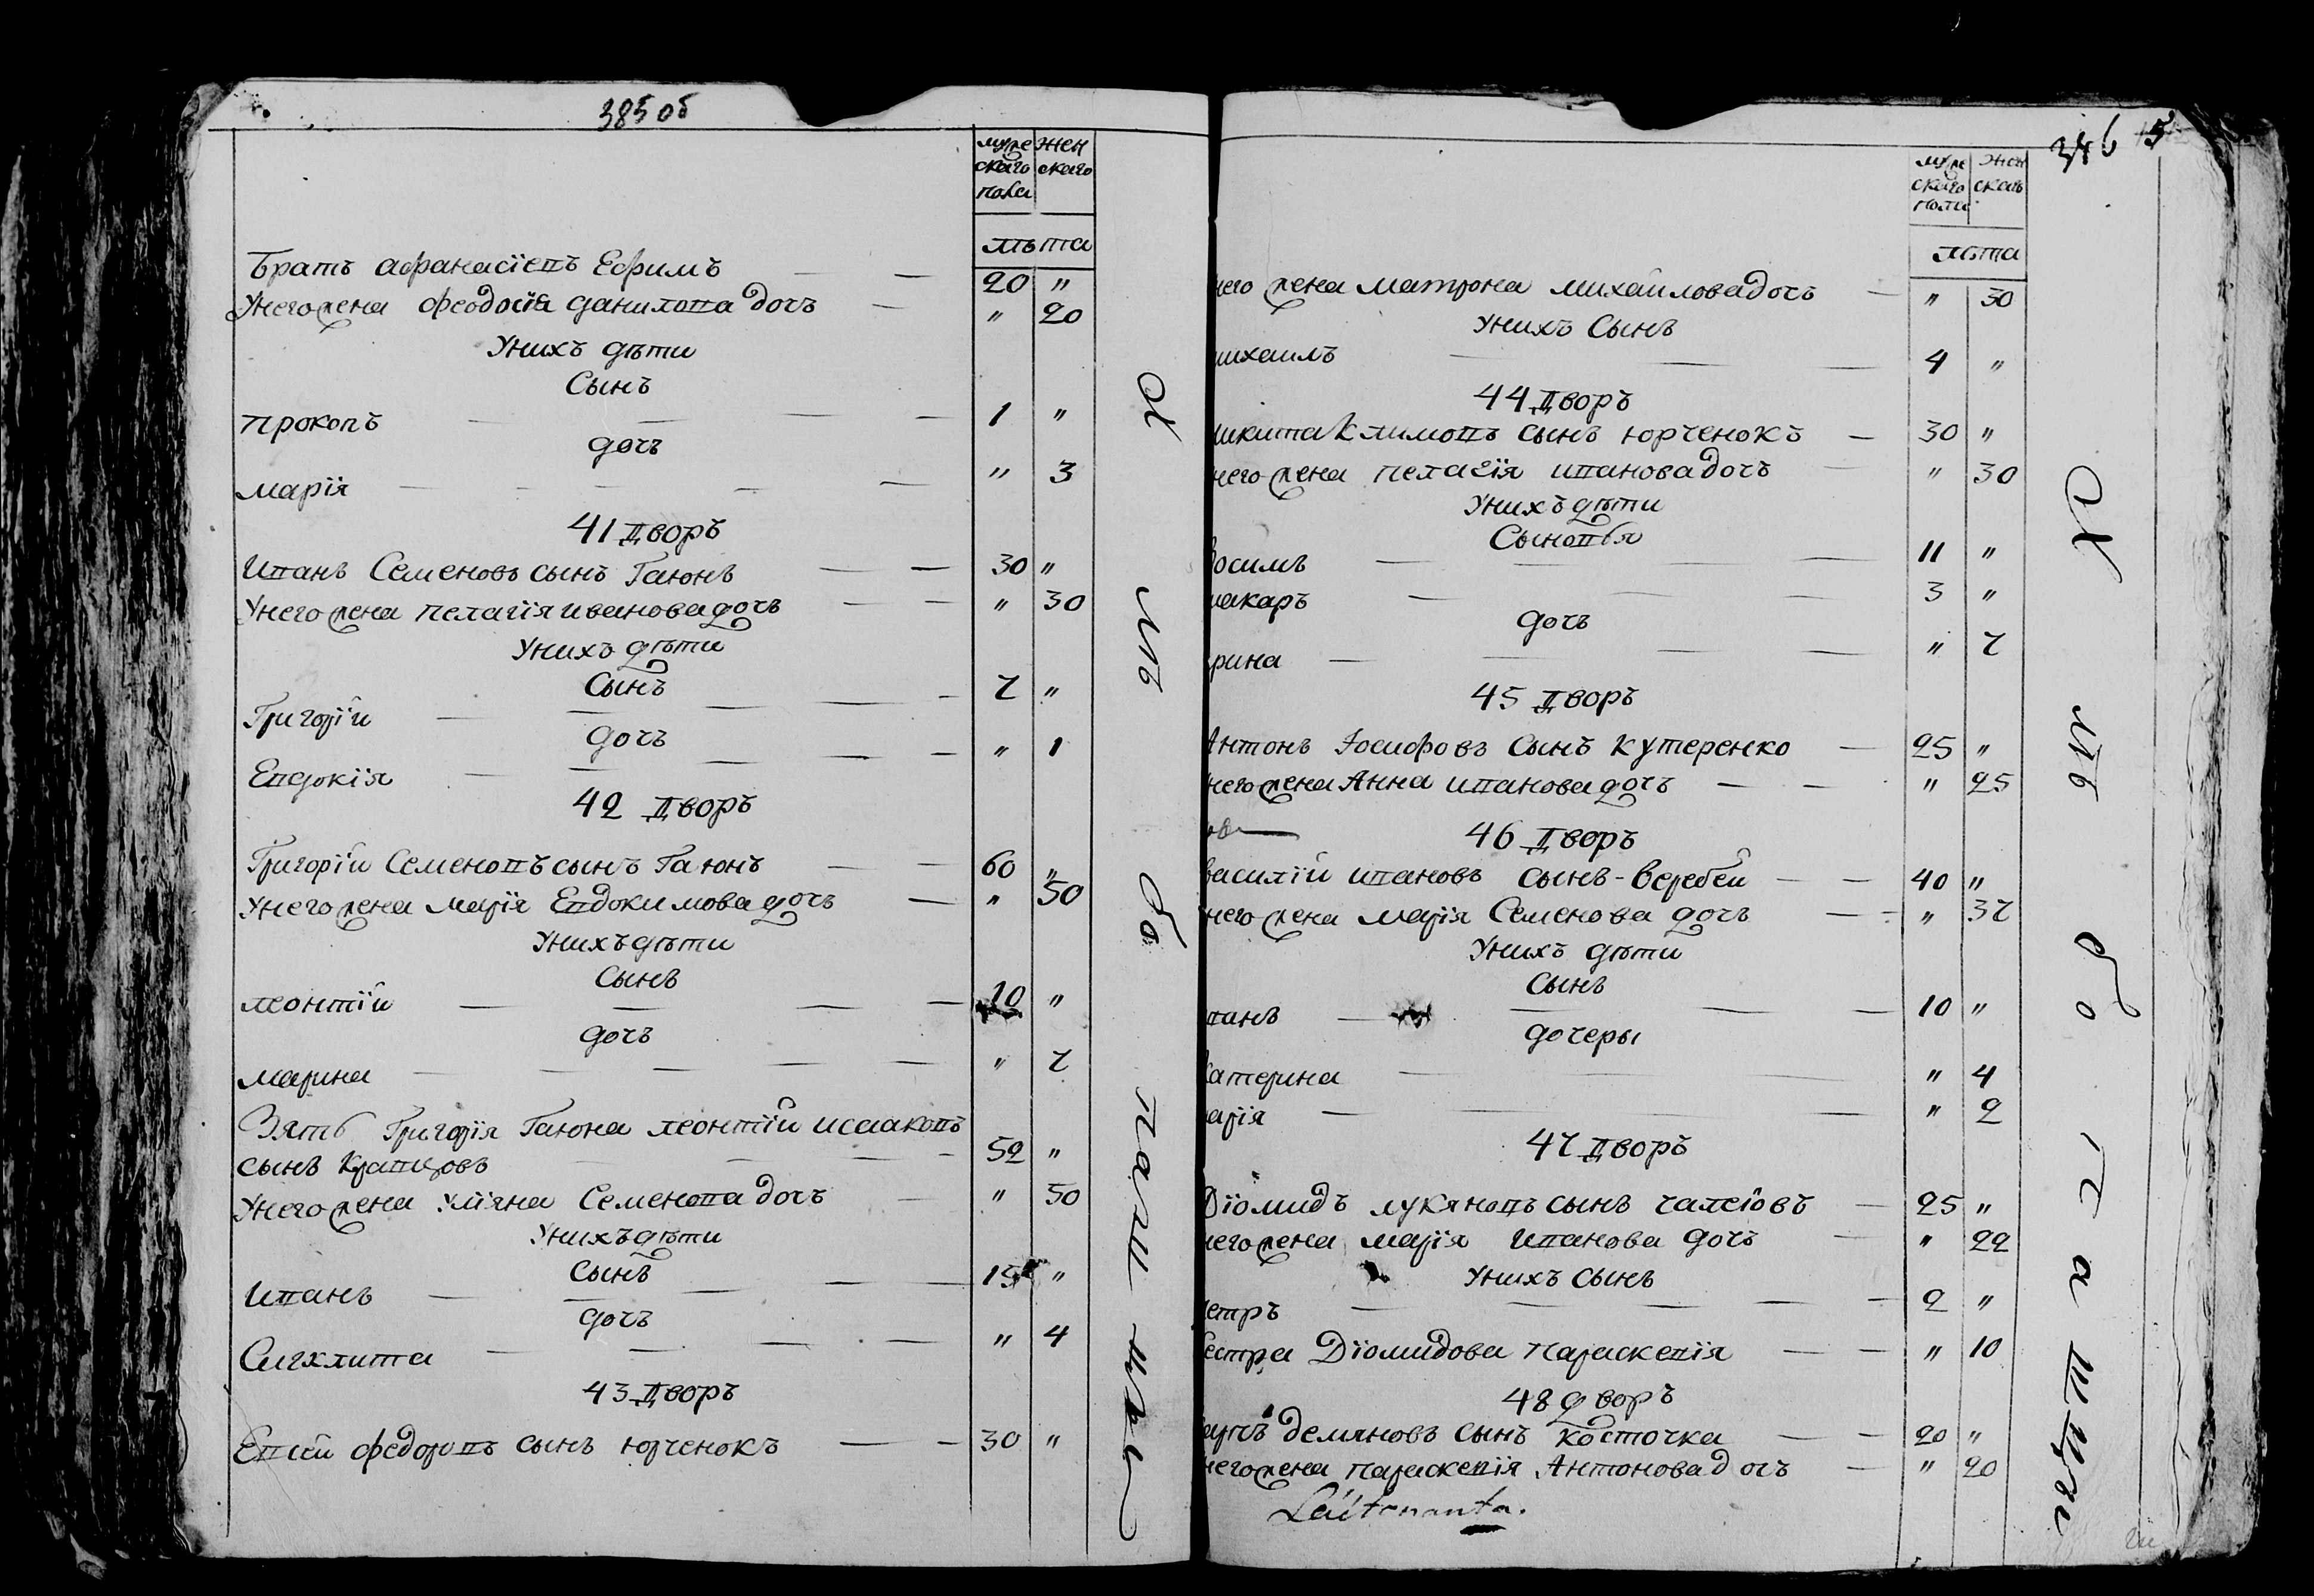 385 об
муже женскаго скаго пола
лѣта
Братъ афанасіевъ Ефимъ 20 "
Унего жена феодосія данилова дочъ " 20
Унихъ дѣти
Сынъ
прокопъ 1 "
дочъ
марія " 3
41 дворъ
Иванъ Семеновъ сынъ Гаюнъ 30 "
Унего жена пелагія иванова дочъ " 30
Унихъ дѣти
Сынъ
Григорій 7 "
дочъ
Евдокія " 1
42 дворъ
Григорій Семеновъ сынъ Гаюнъ 60 "
Унего жена марія Евдокимова дочъ " 50
Унихъ дѣти
Сынъ
леонтій 10 "
дочъ
марина " 7
Зять Григорія Гаюна леонтій исааковъ
сынъ Кравцовъ 52 "
Унего жена уліяна Семенова дочъ " 50
Унихъ дѣти
Сынъ
Иванъ 15 "
дочъ
" 4
43 дворъ
Евсей федоровъ сынъ юрченокъ 30 "
346 5
муже скаго пола жен скаго
лѣта
него жена матрона михайлова дочъ " 30
Унихъ Сынъ
михаилъ 4 "
44 дворъ
никита Климовъ сынъ юрченокъ 30 "
него жена пелагія иванова дочъ " 30
Унихъ дѣти
Сыновья
Зосимъ 11 "
макаръ 3 "
дочъ
рина " 7
45 дворъ
Антонъ Іосифовъ Сынъ кутеренко 25 "
него жена Анна иванова дочъ " 25
46 дворъ
василій ивановъ сынъ - веребей 40 "
него жена марія Семенова дочъ " 37
Унихъ дѣти
Сынъ
ванъ 10 "
дочеры
катерина " 4
арія " 2
47 дворъ
Діомидъ лукяновъ сынъ 25 "
него жена марія Иванова дочъ " 22
Унихъ сынъ
етръ 2 "
Сестра Діомидова параскевія " 10
48 дворъ
демяновъ сынъ косточка 20 "
него жена параскевія Антонова дочъ " 20
Leütenanta.